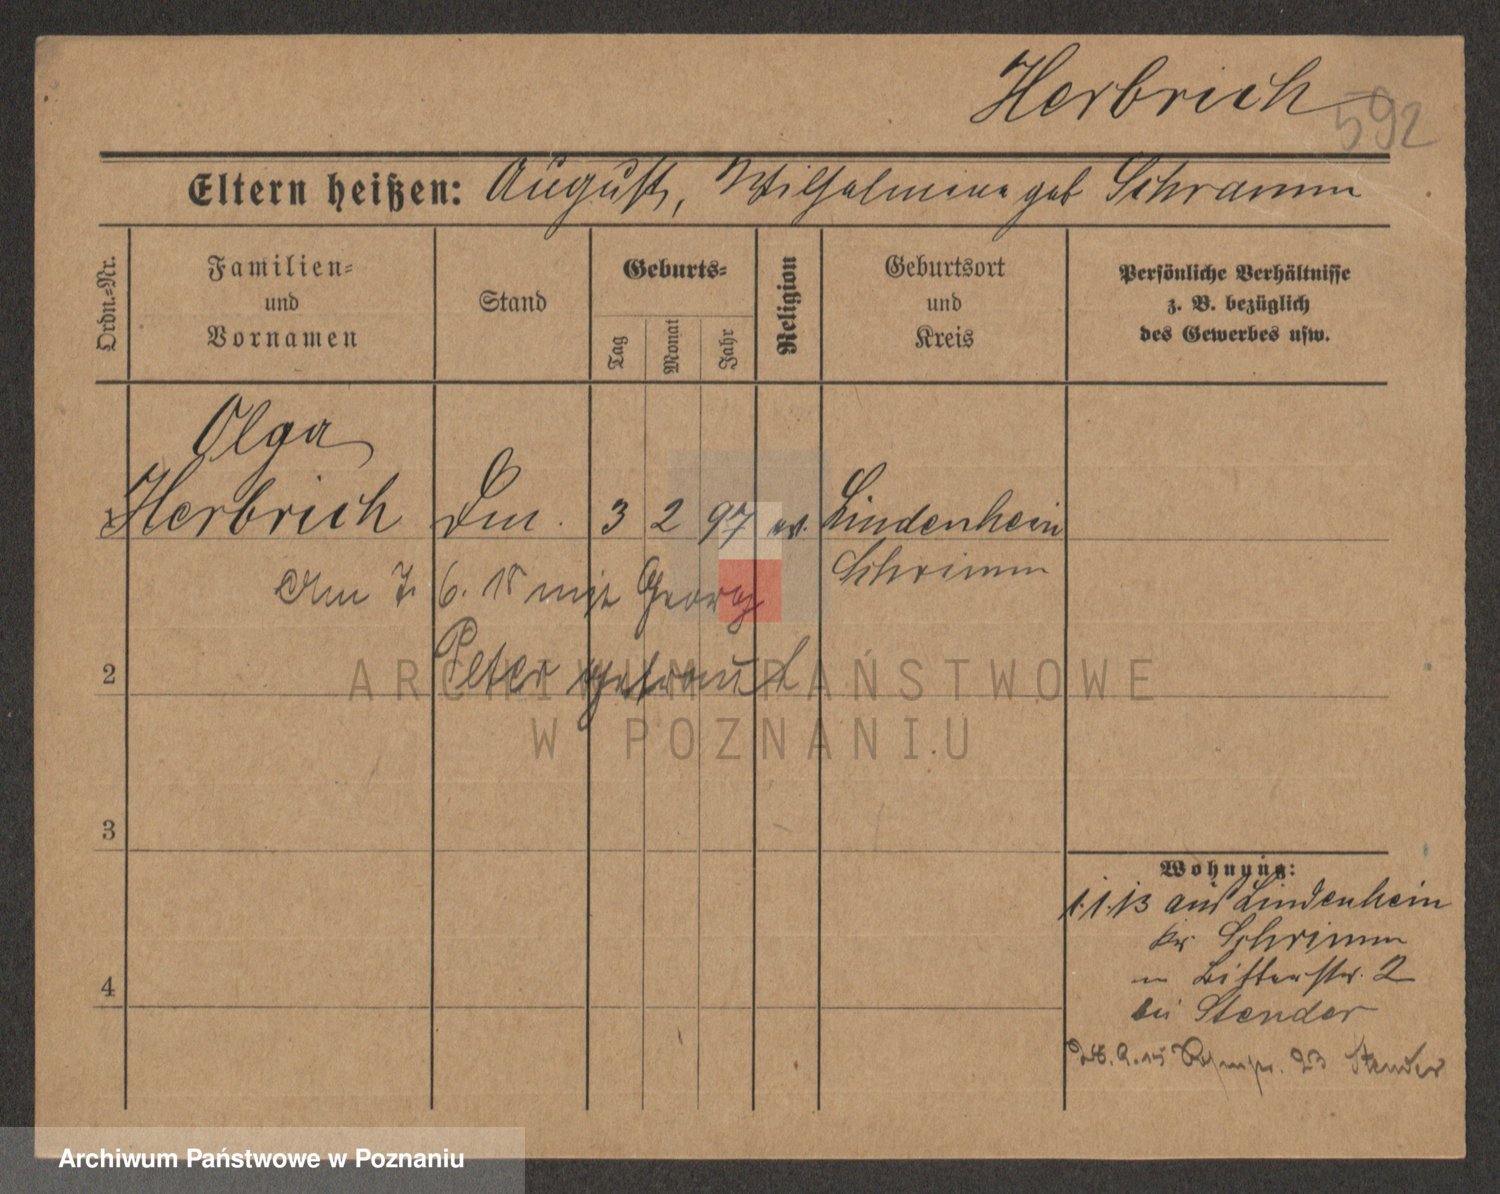 Herbrich
592
Eltern heißen: August, Wilhelmine geb Schramm
Ordn.=Nr.
Familien=
und
Vornamen
Stand
Geburts=
Tag
Monat
Jahr
Religion
Geburtsort
und
Kreis
Persönliche Verhältnisse
z. B. bezüglich
des Gewerbes usw.
Olga
1 Herbrich 3 2 97 ev. Lindenhein
Schrimm
Am 7. 6. 18 mit Georg
Peter getraut
2
3
4
Wohnung:
1.1.13 aus Lindenhein
Kr Schrimm
n Bitterstr. 2
bei Stender
23 Stender
ARCHIWUM PAŃSTWOWE
W POZNANIU
Archiwum Państwowe w Poznaniu